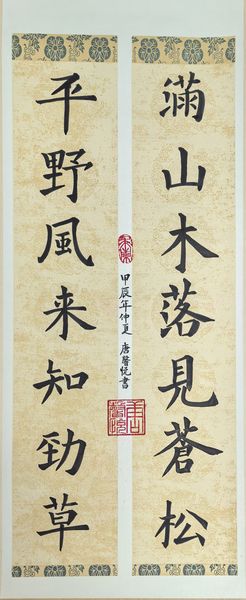 滿山木落見蒼松
平野風来知勁草
甲辰年仲夏 唐馨悦書